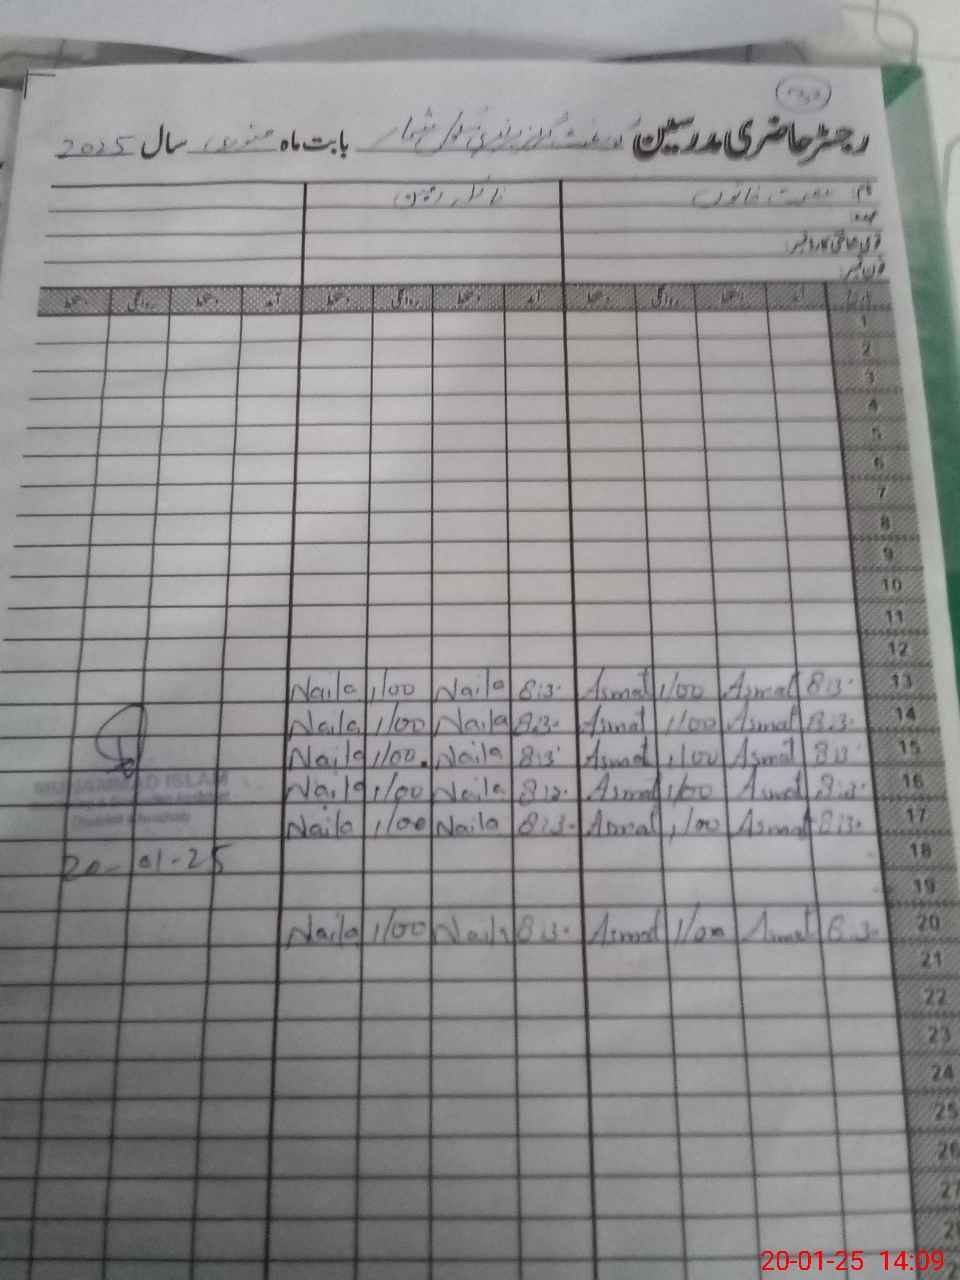 رجسٹر حاضری مدرسین گورنمنٹ گرلز پرائمری سکول بابت ماہ جنوری سال 2025
نام عصمت خاتون
عہدہ
قومی شناختی کارڈ نمبر
فون نمبر
تاریخ آمد دستخط روانگی دستخط آمد دستخط روانگی دستخط آمد دستخط روانگی دستخط
1
2
3
4
5
6
7
8
9
10
11
12
Naila 1/00 Naila 8:3. Asmat 1/00 Asmat 8:3. 13
Naila 1/00 Naila 8:3. Asmat 1/00 Asmat 8:3. 14
Naila 1/00. Naila 8:3. Asmat 1/00 Asmat 8:3. 15
Naila 1/00 Naila 8:3. Asmat 1/00 Asmat 8:3. 16
Naila 1/00 Naila 8:3. Asmat 1/00 Asmat 8:3. 17
MUHAMMAD ISLAM
20-01-25
18
19
Naila 1/00 Naila 8:3. Asmat 1/00 Asmat 8:3. 20
21
22
23
24
25
26
27
20-01-25 14:09